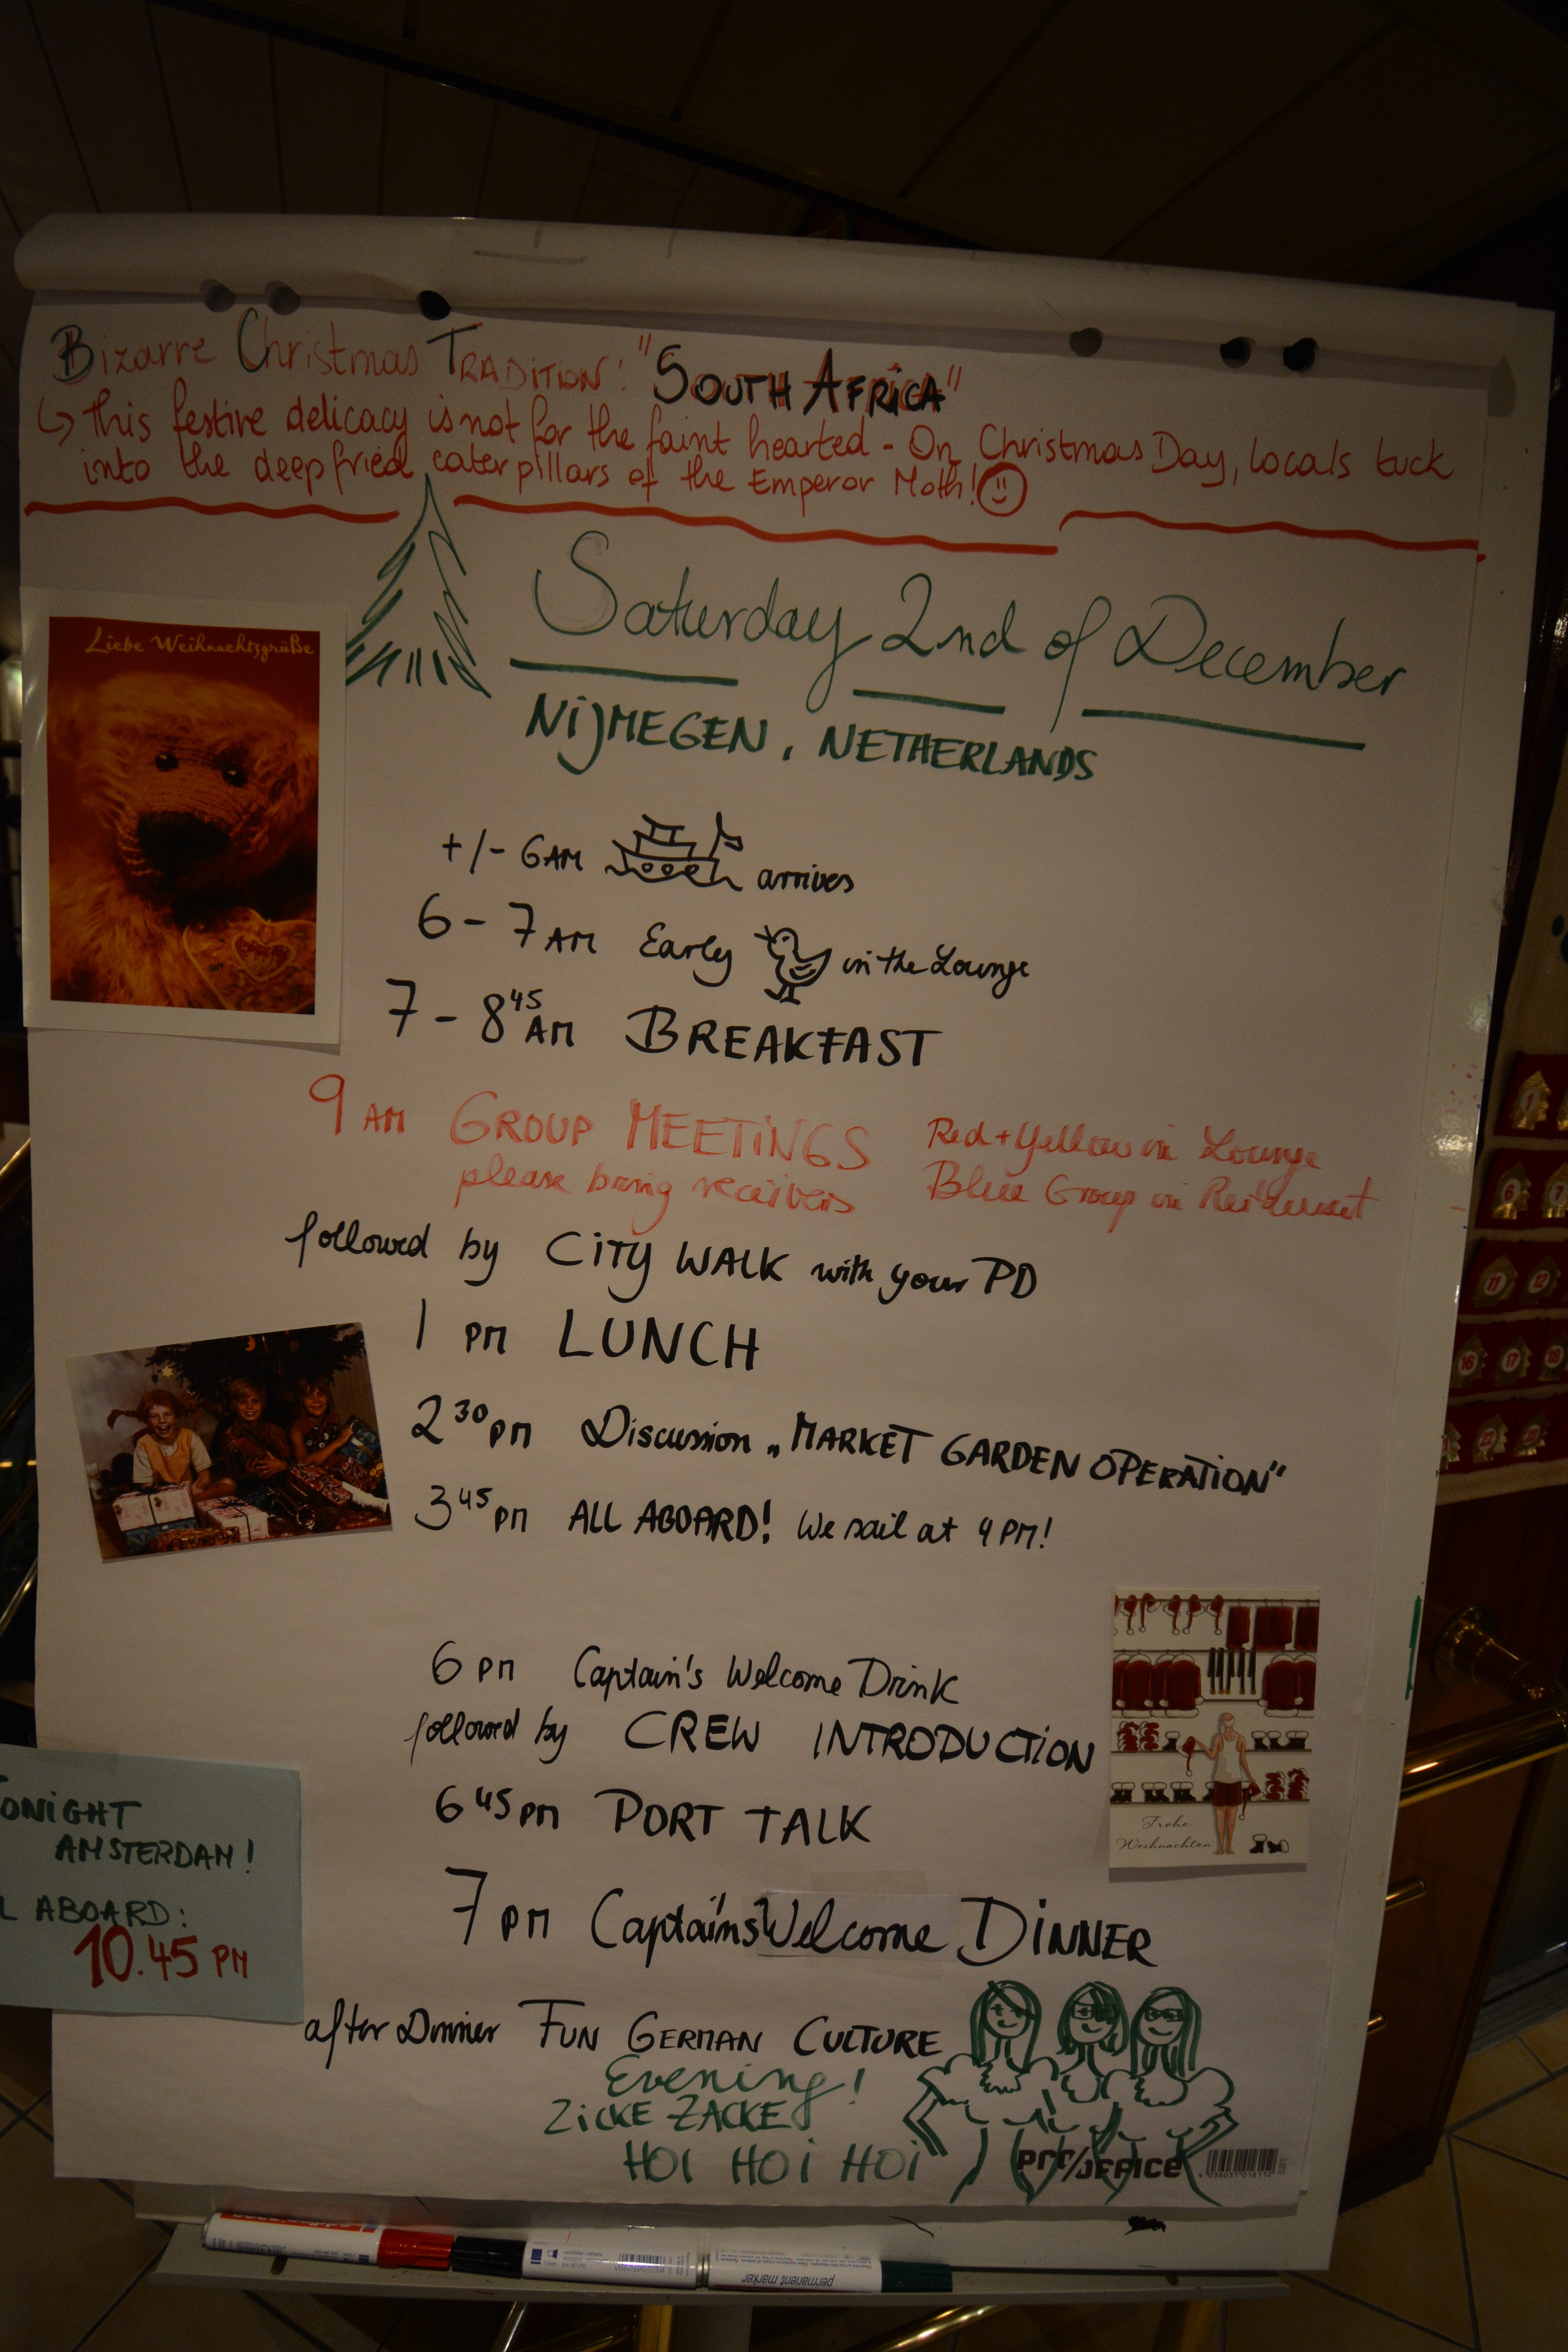 Bizarre Christmas TRADITION: "SOUTH AFRICA"
↳ this festive delicacy is not for the faint hearted - On Christmas Day, locals tuck
into the deepfried caterpillars of the Emperor Moth!
Liebe Weihnachtsgrüße
Saturday 2nd of December
NIJMEGEN, NETHERLANDS
+/- 6AM arrives
6 - 7 AM Early in the Lounge
7 - 8 45 AM BREAKFAST
9 AM GROUP MEETINGS Red + Yellow in Lounge
please bring receivers Blue Group in Restaurant
followed by CITY WALK with your PD
1 PM LUNCH
2 30 PM Discussion „MARKET GARDEN OPERATION"
3 45 PM ALL ABOARD! We sail at 4 PM!
6 PM Captain's Welcome Drink
followed by CREW INTRODUCTION
6 45 PM PORT TALK
Frohe
Weihnachten
7 PM Captain's Welcome DINNER
TONIGHT
AMSTERDAM!
L ABOARD:
10.45 PM
after Dinner FUN GERMAN CULTURE
Evening!
ZICKE ZACKE
HOI HOI HOI
PRO/OFFICE
permanent marker
1
6 7
11 12
16 17 18
22